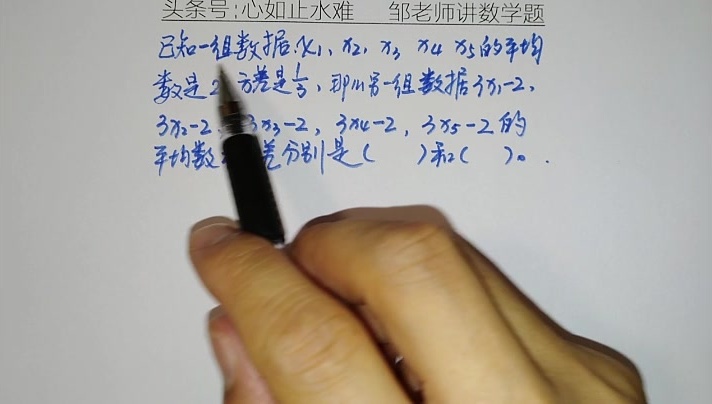 头条号:心如止水难 邹老师讲数学题
已知一组数据x₁, x₂, x₃ x₄ x₅的平均
数是2 方差是1/3, 那么另一组数据3x₁-2,
3x₂-2, 3x₃-2, 3x₄-2, 3x₅-2的
平均数 差分别是( )和( )。